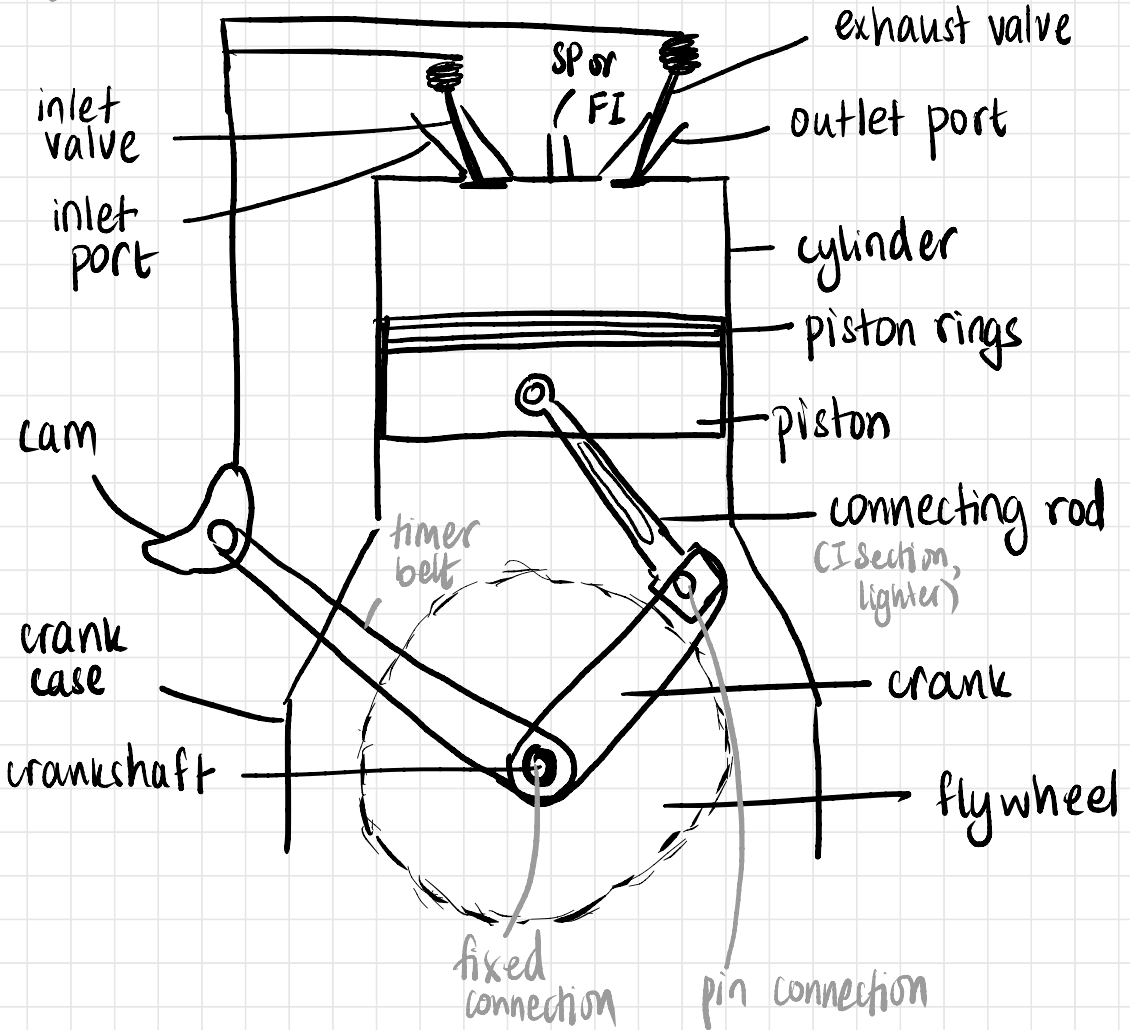 exhaust valve
SP or
FI
inlet
valve
outlet port
inlet
port
cylinder
piston rings
piston
cam
connecting rod
(I section,
lighter)
timer
belt
crank
case
crank
crankshaft
flywheel
fixed
connection
pin connection